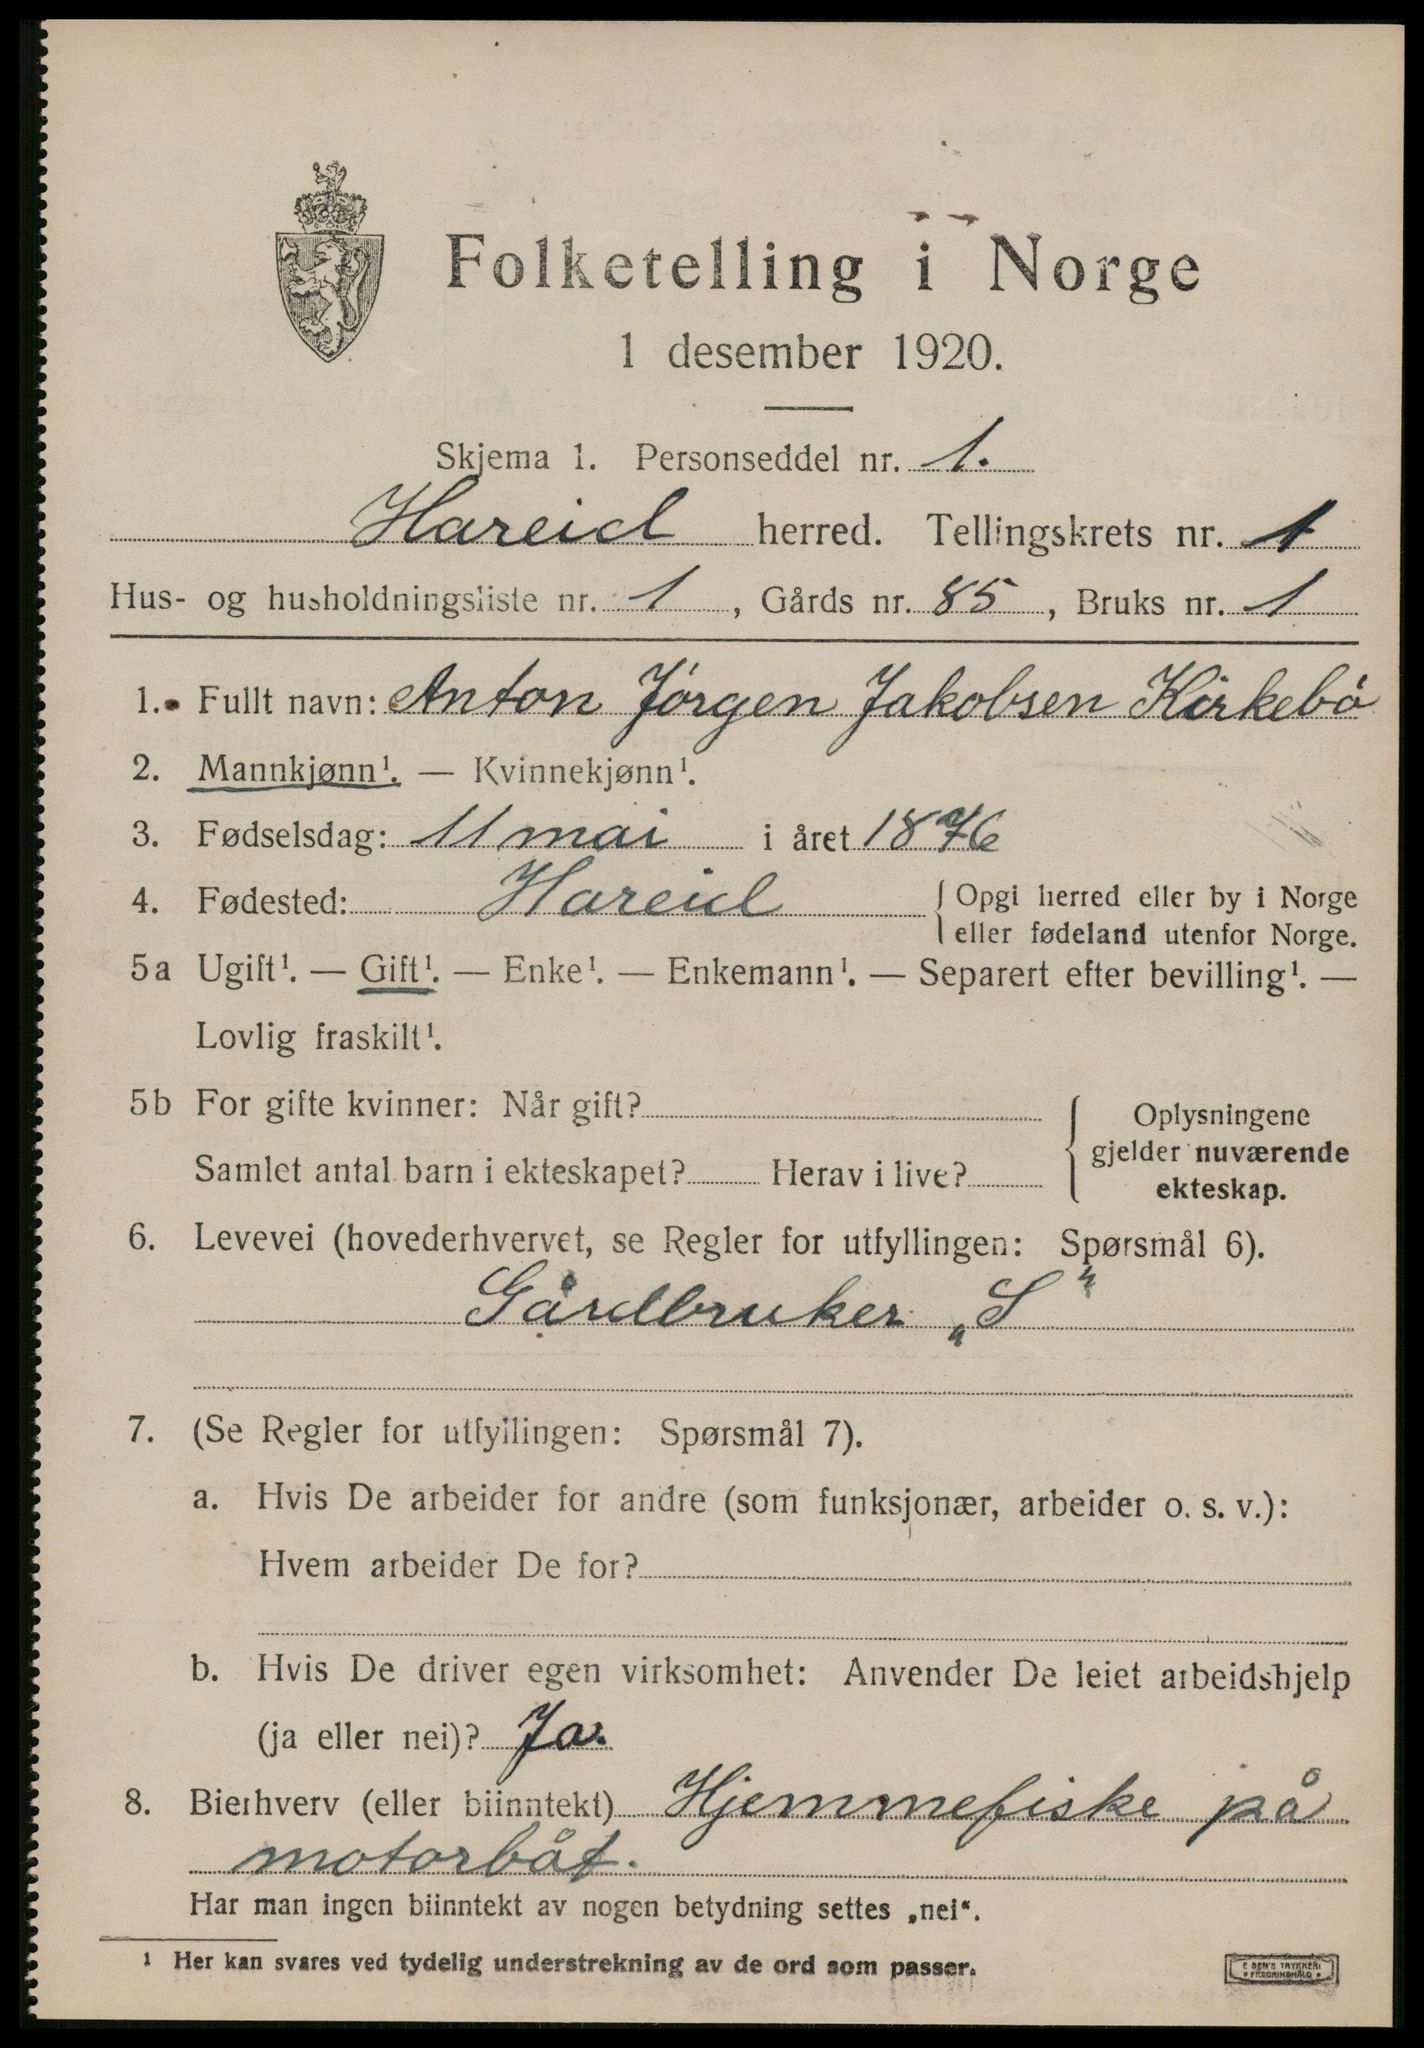 Folketelling i Norge
1 desember 1920.
Skjema 1. Personseddel nr. 1.
Hareid herred. Tellingskrets nr. 1
Hus- og husholdningsliste nr. 1, Gårds nr. 85, Bruks nr. 1
1. Fullt navn: Anton Jørgen Jakobsen Kirkebö
2. Mannkjønn¹. — Kvinnekjønn¹.
3. Fødselsdag: 11 mai i året 1876
4. Fødested: Hareid { Opgi herred eller by i Norge
eller fødeland utenfor Norge.
5a Ugift¹. — Gift¹. — Enke¹. — Enkemann¹. — Separert efter bevilling¹. —
Lovlig fraskilt¹.
5b For gifte kvinner: Når gift?
Samlet antal barn i ekteskapet? Herav i live?
{ Oplysningene
gjelder nuværende
ekteskap.
6. Levevei (hovederhvervet, se Regler for utfyllingen: Spørsmål 6).
Gårdbruker „S"
7. (Se Regler for utfyllingen: Spørsmål 7).
a. Hvis De arbeider for andre (som funksjonær, arbeider o. s. v.):
Hvem arbeider De for?
b. Hvis De driver egen virksomhet: Anvender De leiet arbeidshjelp
(ja eller nei)? Ja.
8. Bierhverv (eller biinntekt) Hjemmefiske på
motorbåt.
Har man ingen biinntekt av nogen betydning settes „nei“.
¹ Her kan svares ved tydelig understrekning av de ord som passer.
E SEM'S TRYKKERI
FREDRIKSHALD